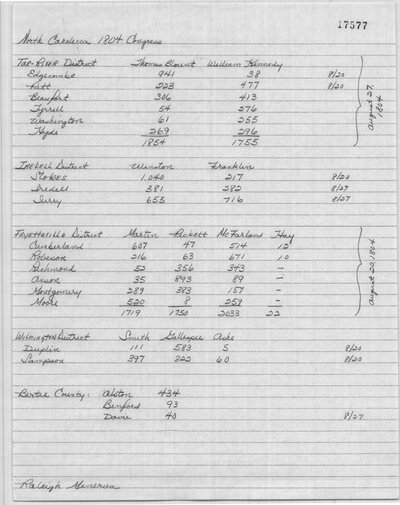 17577
North Carolina 1804 Congress
Tar-River District Thomas Blount William Kennedy
Edgecombe 941 38 8/20
Pitt 223 477 8/20
Beaufort 306 413
Tyrrell 54 276
Washington 61 255
Hyde 269 296
1854 1755
August 27, 1804
Iredell District Winston Franklin
Stokes 1,040 217 8/20
Iredell 381 282 8/27
Surry 655 716 8/27
Fayetteville District Martin Pickett McFarland Hay
Cumberland 607 47 514 12
Robeson 216 63 671 10
Richmond 52 356 343 -
Anson 35 893 89 -
Montgomery 289 383 157 -
Moore 520 8 259 -
1719 1750 2033 22
August 20, 1804
Wilmington District Smith Gillespie Ashe
Duplin 111 583 5 8/20
Sampson 397 322 60 8/20
Bertie County: Alston 434
Binford 93
Davie 40 8/27
Raleigh Minerva